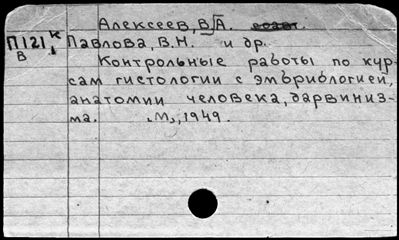 Алексеев, В.А.
П121 к Павлова, В.Н. и др.
В Контрольные работы по кур-
сам гистологии с эмбриологией,
анатомии человека, дарвиниз-
ма. М., 1949.